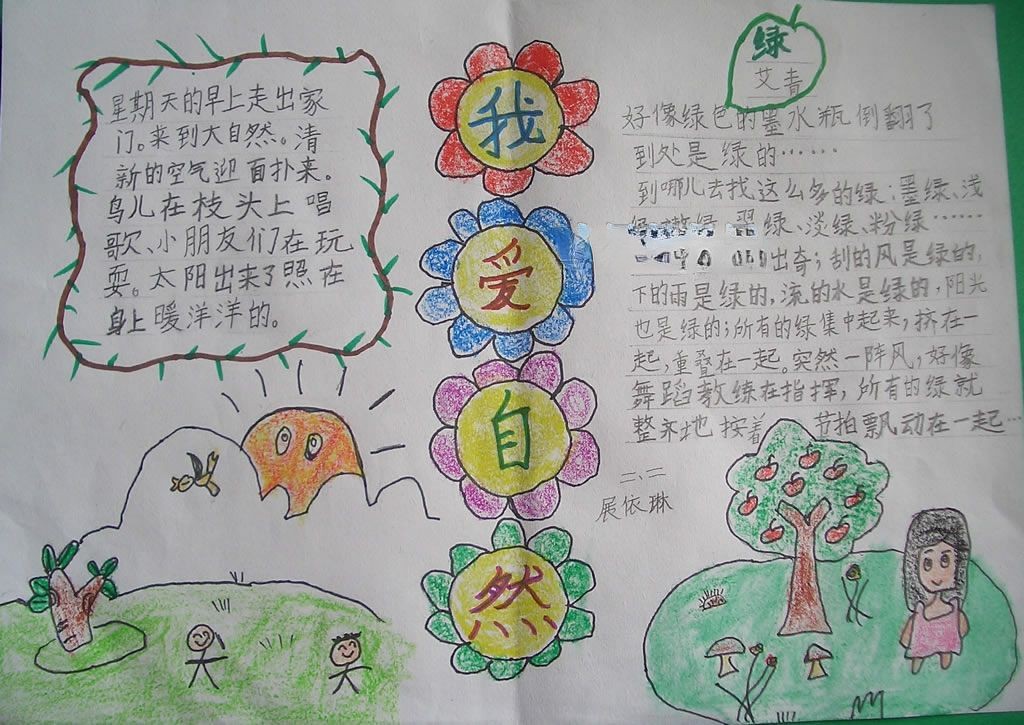 星期天的早上走出家
门。来到大自然。清
新的空气迎面扑来。
鸟儿在枝头上唱
歌、小朋友们在玩
耍。太阳出来了照在
身上暖洋洋的。
我
爱
自
然
绿
艾青
好像绿色的墨水瓶倒翻了
到处是绿的……
到哪儿去找这么多的绿：墨绿、浅
绿、嫩绿、翠绿、淡绿、粉绿……
出奇；刮的风是绿的，
下的雨是绿的，流的水是绿的，阳光
也是绿的；所有的绿集中起来，挤在一
起，重叠在一起。突然一阵风，好像
舞蹈教练在指挥，所有的绿就
整齐地按着节拍飘动在一起…
二、二
展依琳